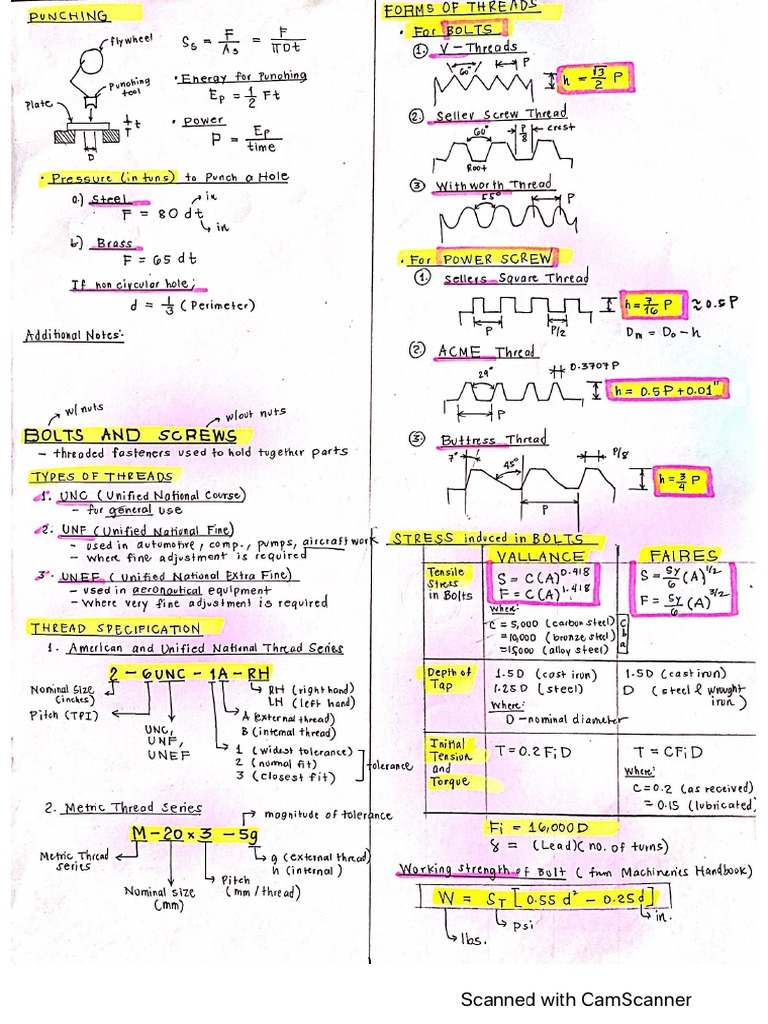 PUNCHING
flywheel
Punching
tool
Plate
t
D
Ss = F/As = F/πDt
• Energy for Punching
Ep = 1/2 Ft
• Power
P = Ep/time
• Pressure (in tons) to Punch a Hole
a.) Steel
F = 80 dt
in
in
b.) Brass
F = 65 dt
If non circular hole;
d = 1/3 (Perimeter)
Additional Notes:
w/ nuts
w/out nuts
BOLTS AND SCREWS
- threaded fasteners used to hold together parts
TYPES OF THREADS
1. UNC (Unified National Course)
- for general use
2. UNF (Unified National Fine)
- used in automotive, comp., pumps, aircraft work
- where fine adjustment is required
3. UNEF (Unified National Extra Fine)
- used in aeronautical equipment
- where very fine adjustment is required
THREAD SPECIFICATION
1. American and Unified National Thread Series
2 - 6UNC - 1A - RH
Nominal Size
(inches)
Pitch (TPI)
UNC,
UNF,
UNEF
RH (right hand)
LH (left hand)
A (external thread)
B (internal thread)
1 (widest tolerance)
2 (normal fit)
3 (closest fit)
tolerance
2. Metric Thread Series
magnitude of tolerance
M - 20 x 3 - 5g
Metric Thread
series
Nominal Size
(mm)
Pitch
(mm/thread)
g (external thread)
h (internal)
FORMS OF THREADS
• For BOLTS
1. V - Threads
60°
P
h = √3/2 P
2. Seller Screw Thread
60°
P/8
crest
Root
3 Withworth Thread
55°
P
• For POWER SCREW
1. Sellers Square Thread
P
P/2
h = 7/16 P ≈ 0.5P
Dm = Do - h
2 ACME Thread
29°
0.3707P
P
h = 0.5P + 0.01"
3. Buttress Thread
7°
45°
P/8
P
h = 3/4 P
STRESS induced in BOLTS
VALLANCE
FAIRES
Tensile
Stress
in Bolts
S = C(A)^0.418
F = C(A)^1.418
Where:
C = 5,000 (carbon steel)
= 10,000 (bronze steel)
= 15000 (alloy steel)
C
b
a
S = Sy/6 (A)^1/2
F = Sy/6 (A)^3/2
Depth of
Tap
1.5D (cast iron)
1.25D (steel)
Where:
D - nominal diameter
1.5D (cast iron)
D (steel & wrought
iron)
Initial
Tension
and
Torque
T = 0.2FiD
T = CFiD
Where:
C = 0.2 (as received)
= 0.15 (lubricated)
Fi = 16,000D
δ = (Lead)(no. of turns)
Working strength of Bolt (from Machineries Handbook)
W = ST [0.55 d² - 0.25d]
lbs.
psi
in.
Scanned with CamScanner